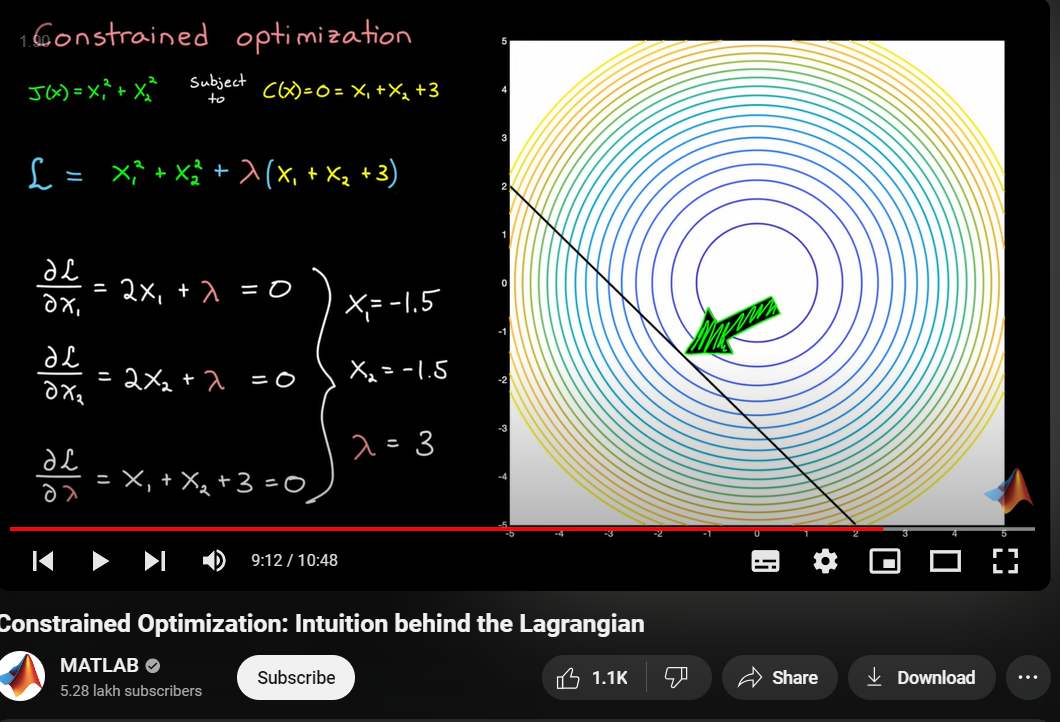 Constrained optimization
1.90
J(x) = x₁² + x₂² Subject to C(x) = 0 = x₁ + x₂ + 3
ℒ = x₁² + x₂² + λ(x₁ + x₂ + 3)
∂ℒ/∂x₁ = 2x₁ + λ = 0
∂ℒ/∂x₂ = 2x₂ + λ = 0
∂ℒ/∂λ = x₁ + x₂ + 3 = 0
x₁ = -1.5
x₂ = -1.5
λ = 3
5
4
3
2
1
0
-1
-2
-3
-4
-5
-5 -4 -3 -2 -1 0 1 2 3 4 5
9:12 / 10:48
Constrained Optimization: Intuition behind the Lagrangian
MATLAB
5.28 lakh subscribers
Subscribe
1.1K
Share
Download